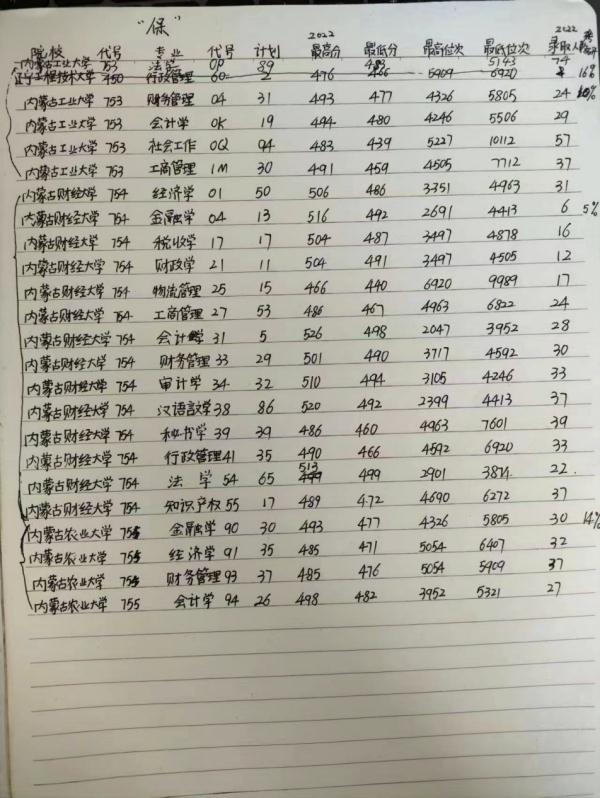 "保"
院校 代号 专业 代号 计划 2022最高分 最低分 最高位次 最低位次 2022录取人数
内蒙古工业大学 753 法学 0P 89 483 5143 74
辽宁工程技术大学 450 行政管理 60 2 476 466 5909 6920 16%
内蒙古工业大学 753 财务管理 04 31 493 477 4326 5805 24
内蒙古工业大学 753 会计学 0K 19 494 480 4246 5506 29
内蒙古工业大学 753 社会工作 0Q 94 483 439 5227 10112 57
内蒙古工业大学 753 工商管理 1M 30 491 459 4505 7712 37
内蒙古财经大学 754 经济学 01 50 506 486 3351 4963 31
内蒙古财经大学 754 金融学 04 13 516 492 2691 4413 6 5%
内蒙古财经大学 754 税收学 17 17 504 487 3497 4878 16
内蒙古财经大学 754 财政学 21 11 504 491 3497 4505 12
内蒙古财经大学 754 物流管理 25 15 466 440 6920 9989 17
内蒙古财经大学 754 工商管理 27 53 486 467 4963 6822 24
内蒙古财经大学 754 会计学 31 5 526 498 2047 3952 28
内蒙古财经大学 754 财务管理 33 29 501 490 3717 4592 30
内蒙古财经大学 754 审计学 34 32 510 494 3105 4246 33
内蒙古财经大学 754 汉语言文学 38 86 520 492 2399 4413 37
内蒙古财经大学 754 秘书学 39 39 486 460 4963 7601 39
内蒙古财经大学 754 行政管理 41 35 490 466 4592 6920 33
内蒙古财经大学 754 法学 54 65 513 499 2901 3874 22
内蒙古财经大学 754 知识产权 55 17 489 472 4690 6272 37
内蒙古农业大学 755 金融学 90 30 493 477 4326 5805 30 14%
内蒙古农业大学 755 经济学 91 35 485 471 5054 6407 32
内蒙古农业大学 755 财务管理 93 37 485 476 5054 5909 37
内蒙古农业大学 755 会计学 94 26 498 482 3952 5321 27